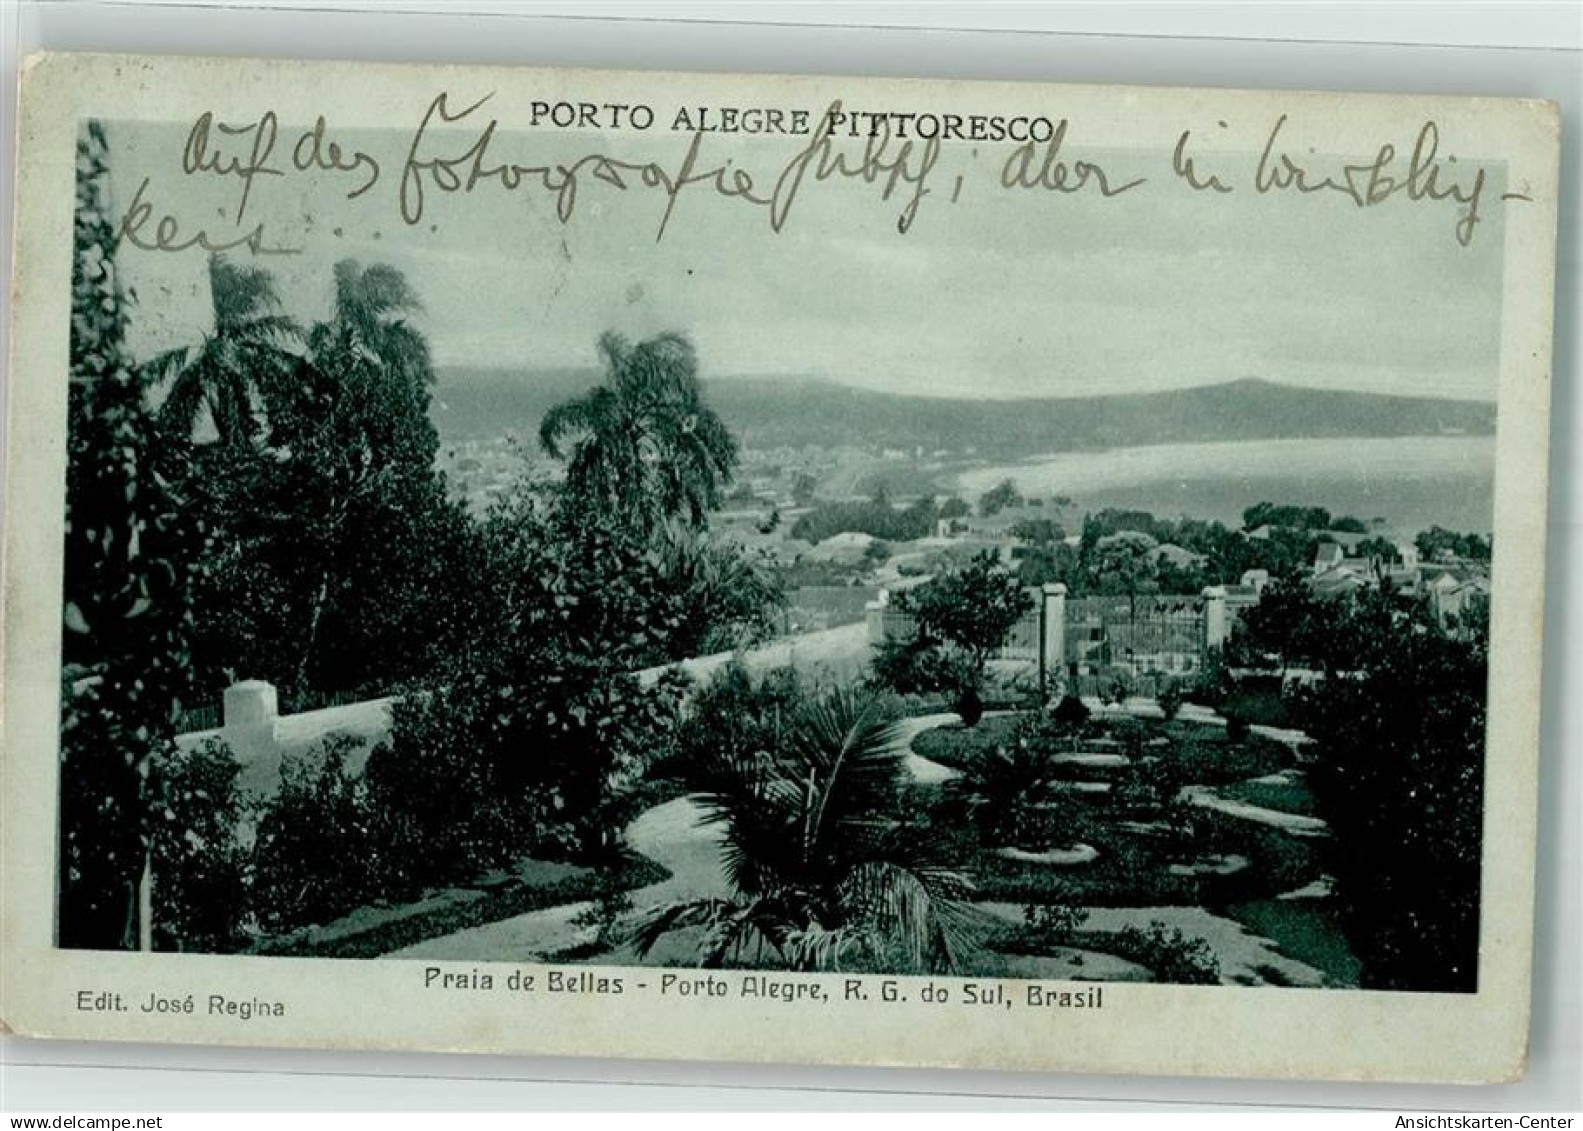 PORTO ALEGRE PITTORESCO
Auf der Fotografie hübsch, aber in Wirklich-
keit ....
Praia de Bellas - Porto Alegre, R. G. do Sul, Brasil
Edit. José Regina
oldthing.de
Ansichtskarten-Center